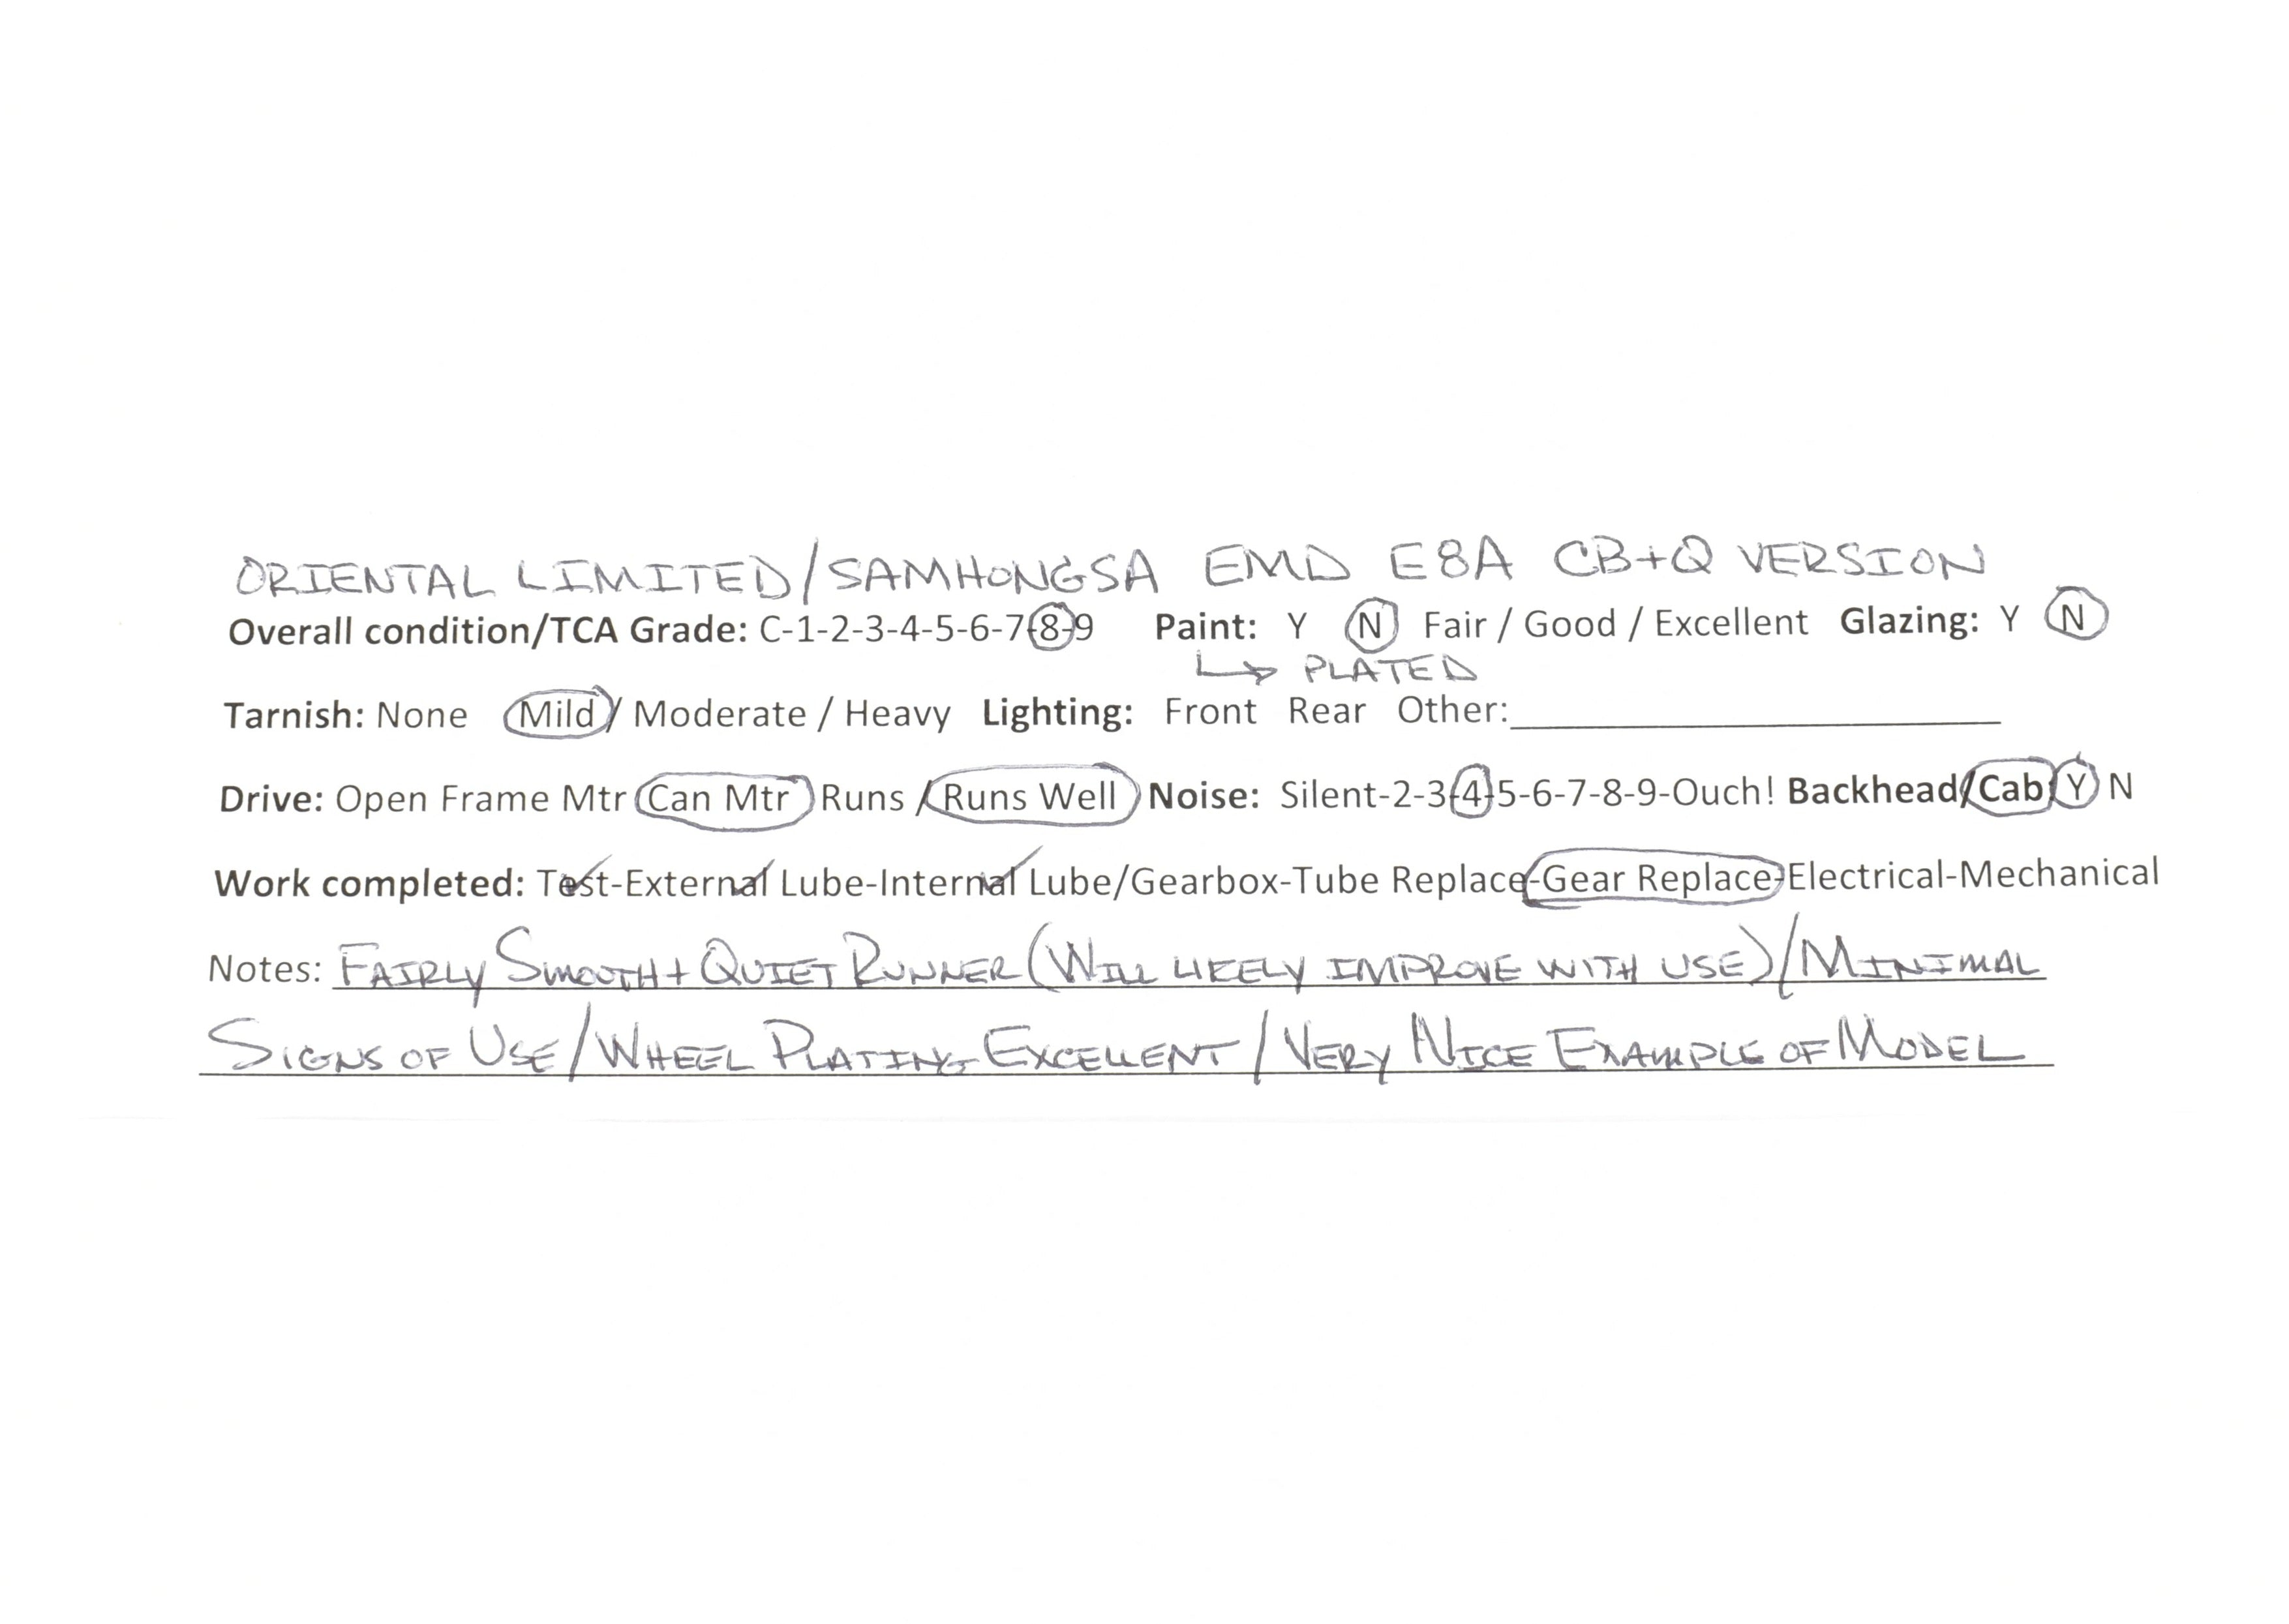 ORIENTAL LIMITED/SAMHONGSA EMD E8A CB+Q VERSION
Overall condition/TCA Grade: C-1-2-3-4-5-6-7-8-9 Paint: Y N Fair / Good / Excellent Glazing: Y N
↳ PLATED
Tarnish: None Mild / Moderate / Heavy Lighting: Front Rear Other:
Drive: Open Frame Mtr Can Mtr Runs / Runs Well Noise: Silent-2-3-4-5-6-7-8-9-Ouch! Backhead/Cab Y N
Work completed: Test-External Lube-Internal Lube/Gearbox-Tube Replace-Gear Replace-Electrical-Mechanical
Notes: FAIRLY SMOOTH + QUIET RUNNER (WILL LIKELY IMPROVE WITH USE)/MINIMAL
SIGNS OF USE/WHEEL PLATING EXCELLENT/VERY NICE EXAMPLE OF MODEL